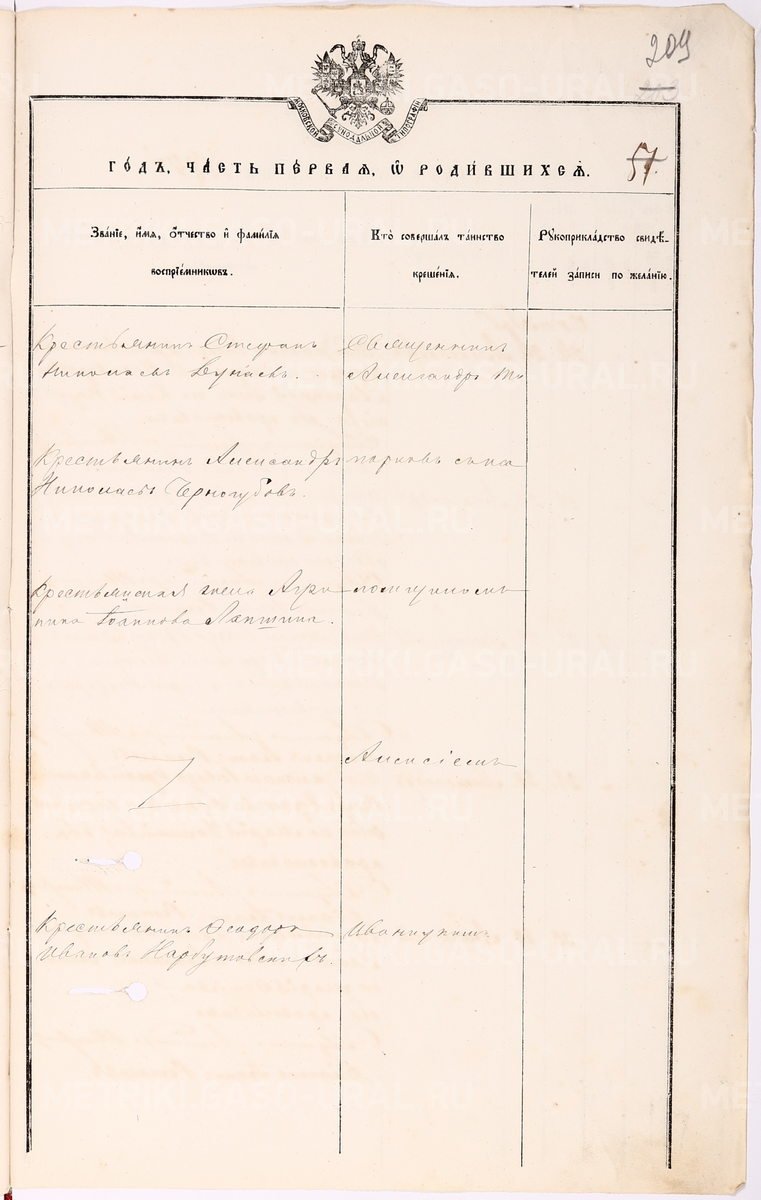 209
МОСКОВСКОЙ СѴНОДАЛЬНОЙ ТИПОГРАФІИ
57.
ГО́ДЪ, ЧА́СТЬ ПЕ́РВАЯ, Ѡ҆ РОДИ́ВШИХСѦ.
Зва́нїе, и҆́мя, ѻ҆́тчество и҆ фами́лїя
воспрїе́мникѡвъ.
Кто̀ соверша́лъ та́инство
креще́нїя.
Рꙋкоприкла́дство свидѣ́-
телей за́писи по жела́нїю.
Крестьянинъ Стефанъ
Николаевъ Дунаевъ.
Священникъ
Александръ То
Крестьянинъ Александръ
Николаевъ Черногубовъ.
порковъ съ пса
Крестьянская жена Агри
пина Іоаннова Лапшина.
ломщикомъ
Алексіемъ
Крестьянинъ Феодоръ
Ивановъ Нарбутовскихъ.
METRIKI.GASO-URAL.RU